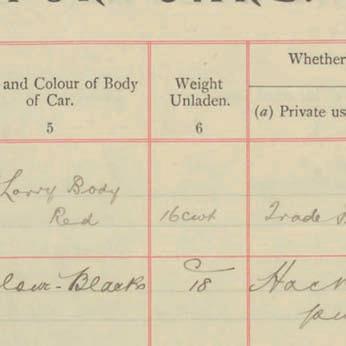 and Colour of Body
of Car.
5
Weight
Unladen.
6
Whether
(a) Private us
Lorry Body
Red
16 cwt
Trade
Black
C
18
Hack